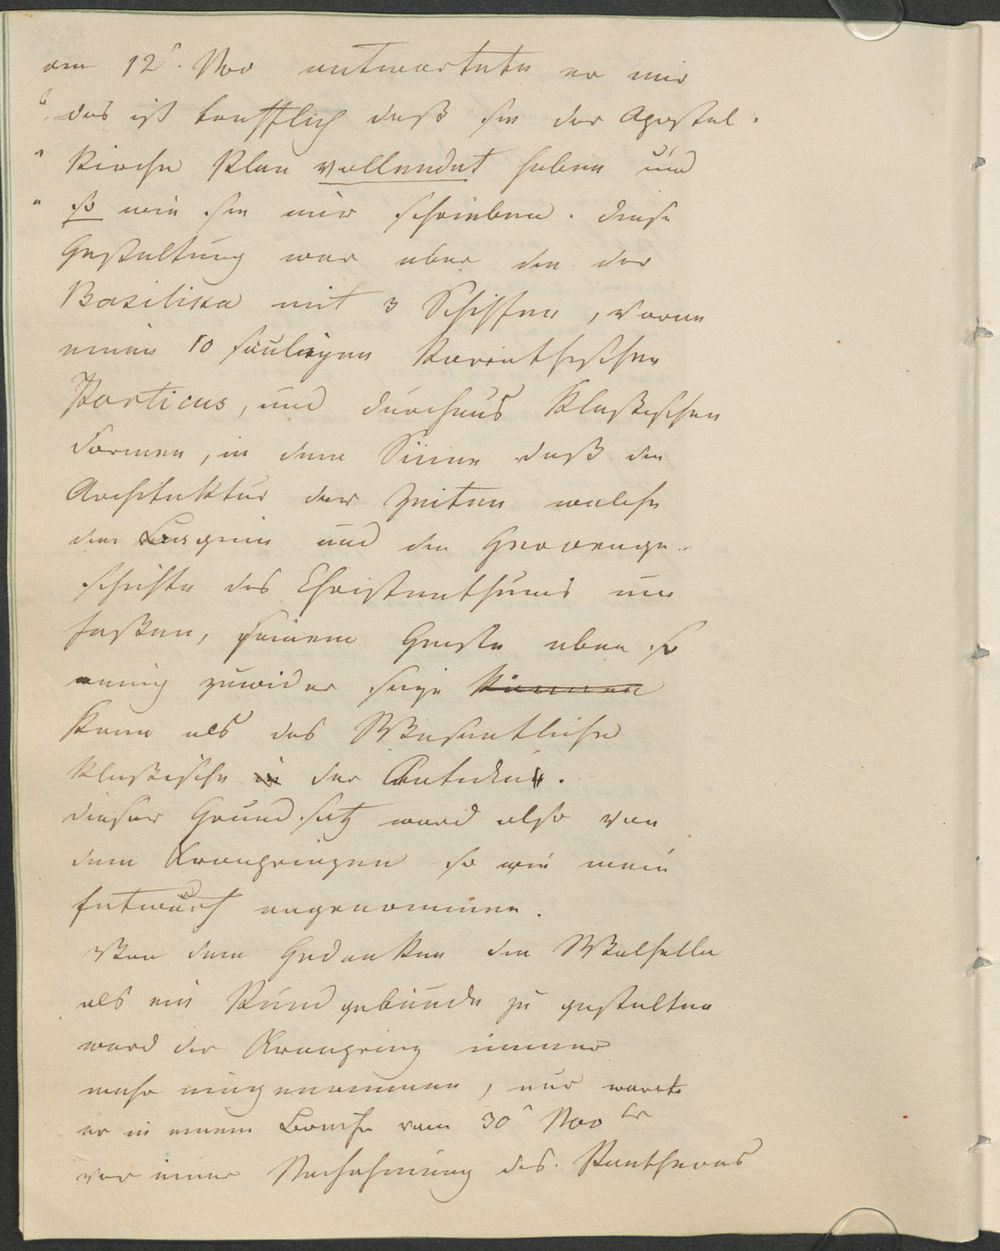 am 12t. Nov antwortete er mir
„das ist trefflich daß sie der Apostel-
„Kirche Plan vollendet haben und
„so wie sie mir schrieben. diese
Gestaltung war aber die der
Basilika mit 3 Schiffen, vorne
einen 10 säuligen Korinthischen
Porticus, und durchaus Klaßischen
Formen, in dem Sinne daß die
Architektur der Zeiten welche
den Beginn und die Hervorenge-
schichte des Christenthums um
faßen, seinem Geiste eben so
wenig zuwider seyn können
kann als das Wesentliche
Klaßische in der Antike.
dieser Grundsatz ward also von
dem Kronprinzen so wie mein
Entwurf angenommen.
Von dem Gedanken die Walhalla
als ein Rundgebäude zu gestalten
ward der Kronprinz immer
mehr eingenommen, nur warnte
er in einem Briefe vom 30t Novbr
vor einer Nachahmung des Pantheons